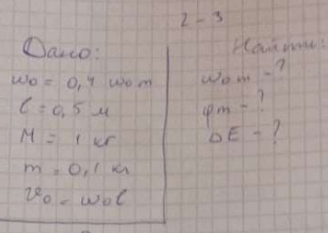 2 - 3
Дано:
ω₀ = 0,4 ω₀m
l = 0,5 м
M = 1 кг
m = 0,1 кг
v₀ = ω₀l
Найти:
ω₀m - ?
φm - ?
ΔE - ?